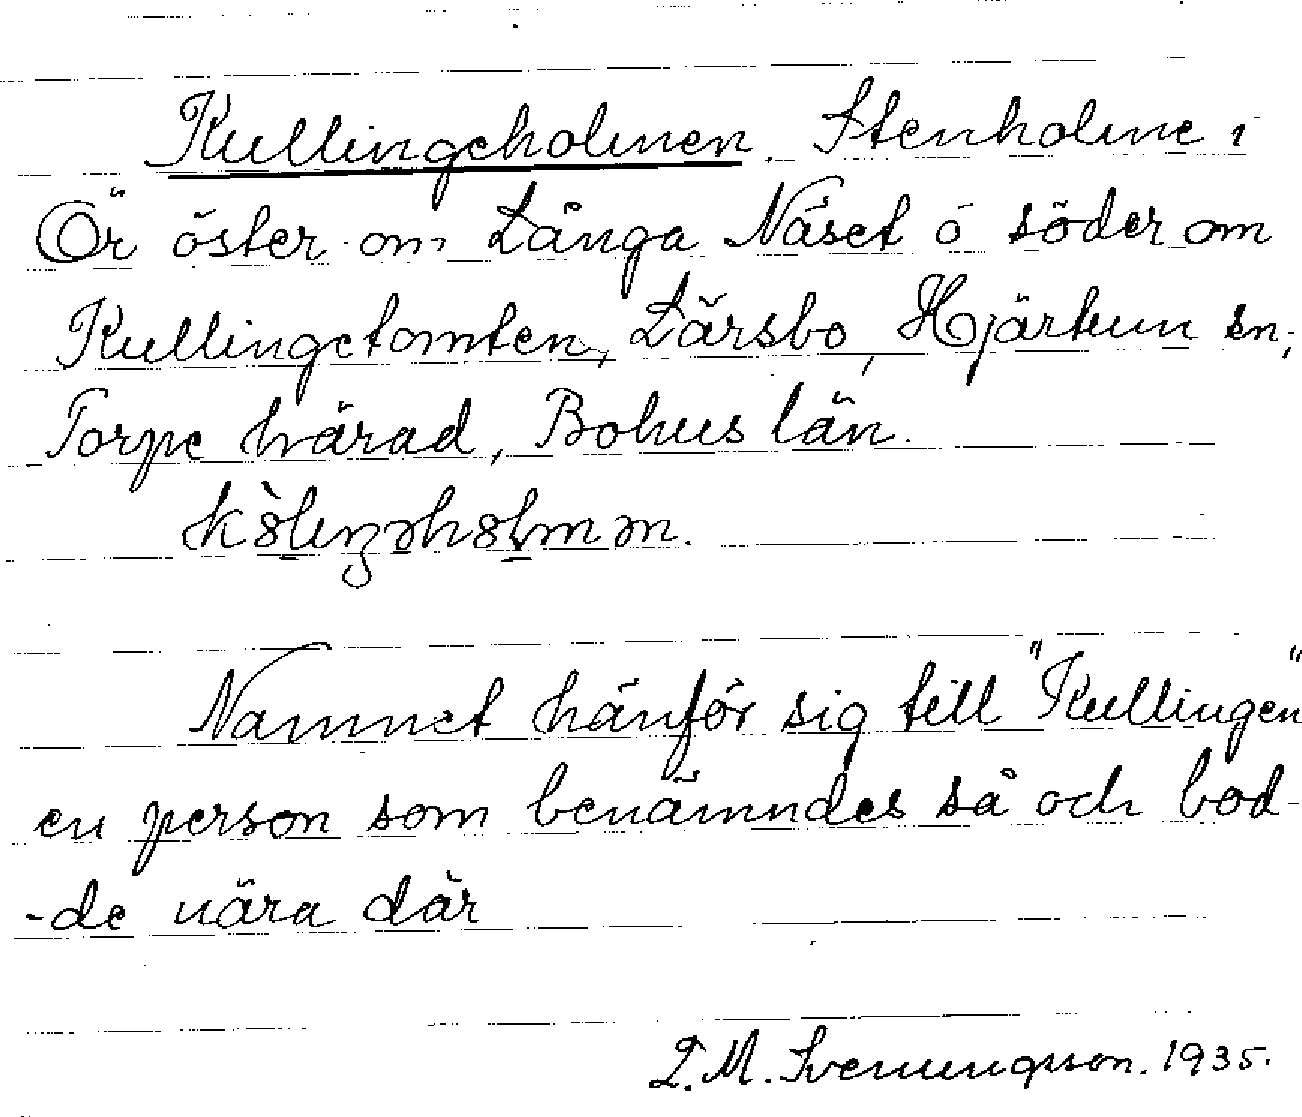 Kullingeholmen. Stenholme i
Ör öster om Långa Näset ó söder om
Kullingetomten, Lärsbo, Hjärtum sn,
Torpe härad, Bohus län.
Namnet hänför sig till "Kullingen"
en person som benämndes så och bod-
-de nära där
L. M. Svenungsson. 1935.